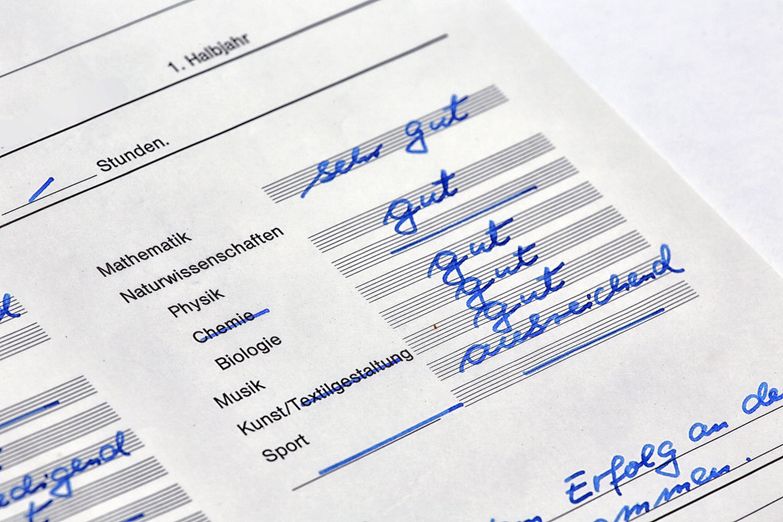 1. Halbjahr
Stunden.
Mathematik sehr gut
Naturwissenschaften
Physik gut
Chemie
Biologie gut
Musik gut
Kunst/Textilgestaltung gut
Sport ausreichend
edigend
Erfolg an de
ommen.